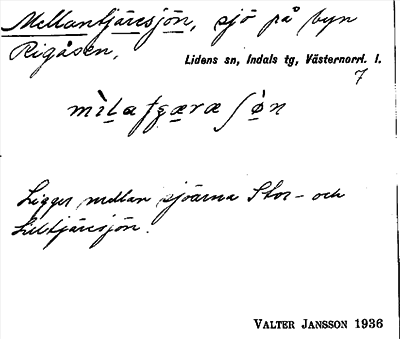 Mellantjärnsjön, sjö på byn
Rigåsen,
Lidens sn, Indals tg, Västernorrl. l.
7
Ligger mellan sjöarna Stor- och
Lilltjärnsjön.
VALTER JANSSON 1936